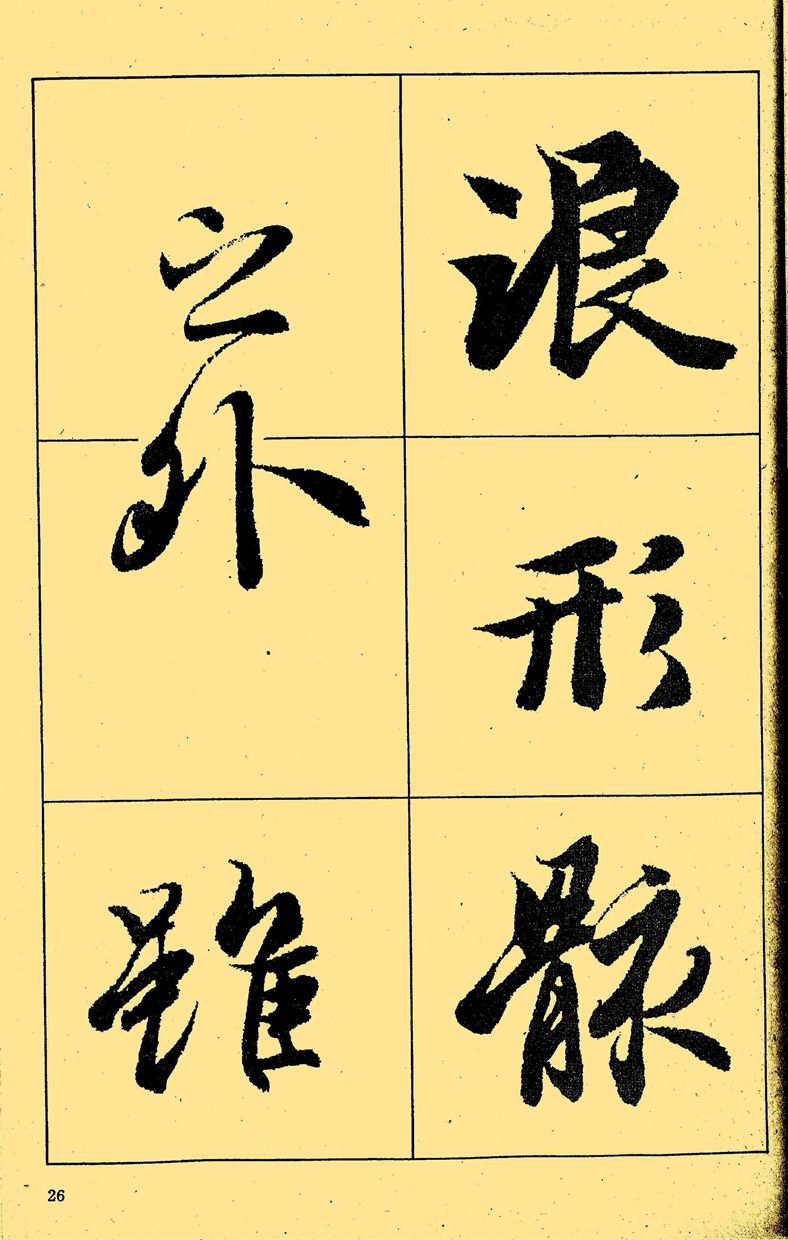 浪形骸
之外雖
26